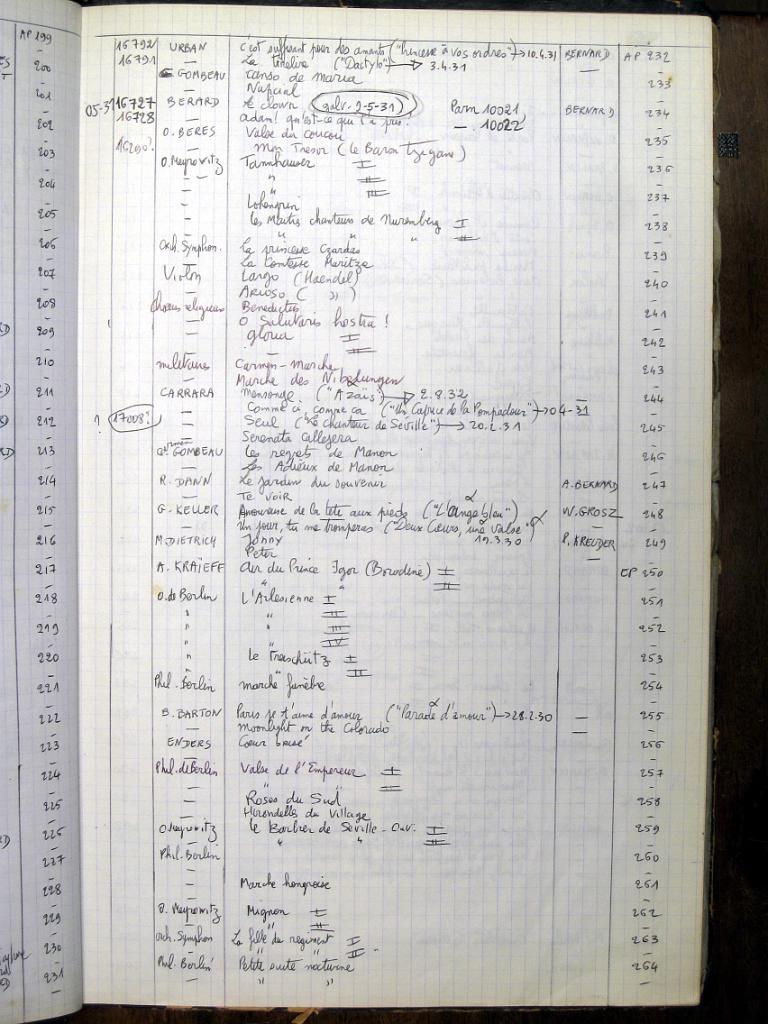 AP 199
200
201
202
203
204
205
206
207
208
209
210
211
212
213
214
215
216
217
218
219
220
221
222
223
224
225
226
227
228
229
230
231
16792 URBAN c'est suffisant pour des amants ("Princesse à vos ordres") → 10.4.31 BERNARD AP 232
16791 — La tirelire ("Dactylo") → 3.4.31 —
GOMBEAU canso de maria 233
— Nupcial
16727 BERARD le clown (galv. 9-5-31) Parn 10021 BERNARD 234
16728 — adam! qu'est-ce que t'as pris? — 10022
O. BERES Valse du coucou 235
— Mon Tresor (le Baron Tzigane)
O. Meyrowitz Tannhauser I 236
— " II
— " III 237
— Lohengrin
— Les Maitres chanteurs de Nuremberg I 238
— " " " II
Orch. Symphon. La princesse Czardas 239
— La Comtesse Maritza
Violon Largo (Haendel) 240
— Arioso ( " )
choeurs religieux Benedictus 241
— O Salutaris hostia!
— gloria I 242
— II
militaire Carmen - Marche 243
— Marche des Nibelungen
CARRARA mensonge ("Azaïs") → 2.9.32 — 244
17008? — Comme ci, comme ça ("Un Caprice de la Pompadour") → 04-31 —
— Seul ("Le chanteur de Séville") → 20.2.31 245
— Serenata callejera
GOMBEAU Les regrets de Manon 246
— Les Adieux de Manon
R. DANN Le jardin du souvenir A. BERNARD 247
— Te voir
G. KELLER Amoureuse de la tête aux pieds ("L'ange bleu") W. GROSZ 248
— Un jour, tu me tromperas ("Deux Coeurs, une valse")
M. DIETRICH Jonny 19.3.30 P. KREUDER 249
— Peter —
A. KRAÏEFF air du Prince Igor (Borodine) I EP 250
— " " II
O. de Berlin L'Arlesienne I 251
" " II
" " III 252
" " IV
" Le Freischütz I 253
" II
Phil. Berlin marche funèbre 254
—
B. BARTON Paris je t'aime d'amour ("Parade d'amour") → 28.2.30 — 255
— Moonlight on the Colorado —
ENDERS Coeur brisé 256
—
Phil. de Berlin Valse de l'Empereur I 257
— II
— Roses du Sud 258
— Hirondelles du Village
O. Meyrowitz le Barbier de Séville - Ouv. I 259
— " " II
Phil. Berlin 260
—
— Marche hongroise 261
—
O. Meyrowitz Mignon I 262
— " II
orch. Symphon La fille du regiment I 263
— " " II
Phil. Berlin Petite suite nocturne 264
— " "